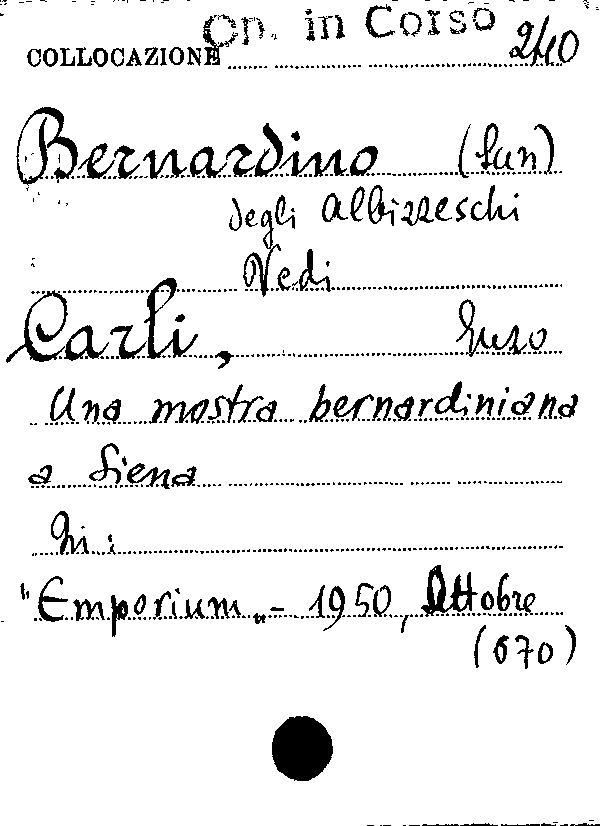 Op. in Corso
COLLOCAZIONE 2/10
Bernardino (San)
degli Albizzeschi
Vedi
Carli, Enzo
Una mostra bernardiniana
a Siena
In:
"Emporium" - 1950, Ottobre
(670)